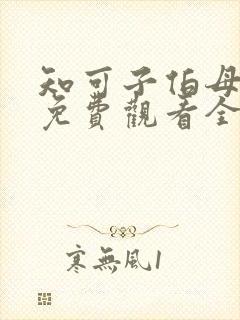 知可子伯母
免費觀看全
寒無風1